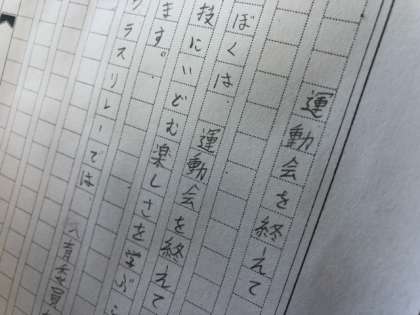 運動会を終えて
ぼくは 運動会を終えて
技にいどむ楽しさを学ぶ
ます。
クラスリレーでは